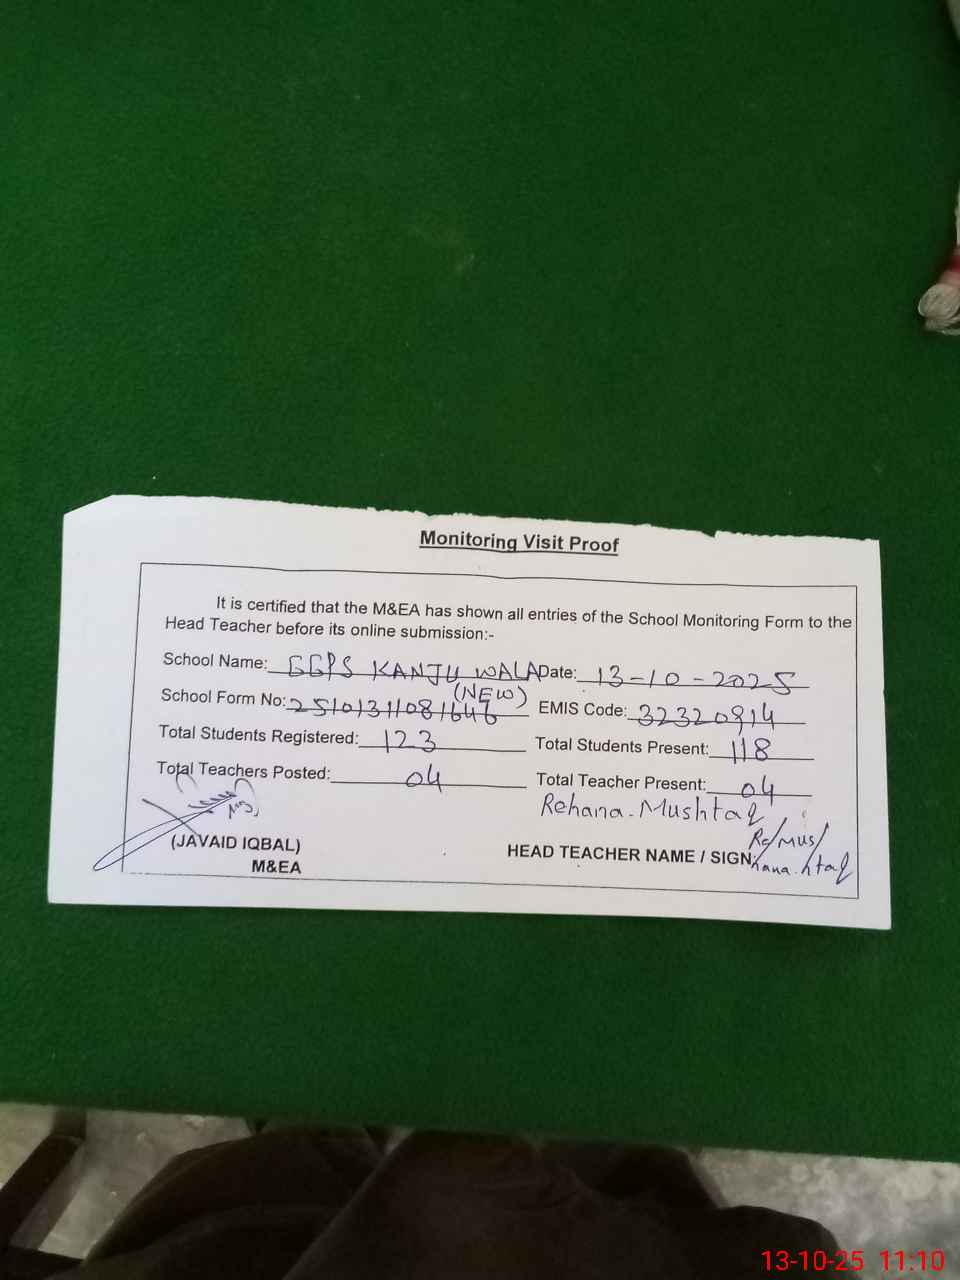 Monitoring Visit Proof
It is certified that the M&EA has shown all entries of the School Monitoring Form to the
Head Teacher before its online submission:-
School Name: GGPS KANJU WALA (NEW) Date: 13-10-2025
School Form No: 25101311081646 EMIS Code: 32320914
Total Students Registered: 123 Total Students Present: 118
Total Teachers Posted: 04 Total Teacher Present: 04
Rehana. Mushtaq
(JAVAID IQBAL)
M&EA
HEAD TEACHER NAME / SIGN
13-10-25 11:10